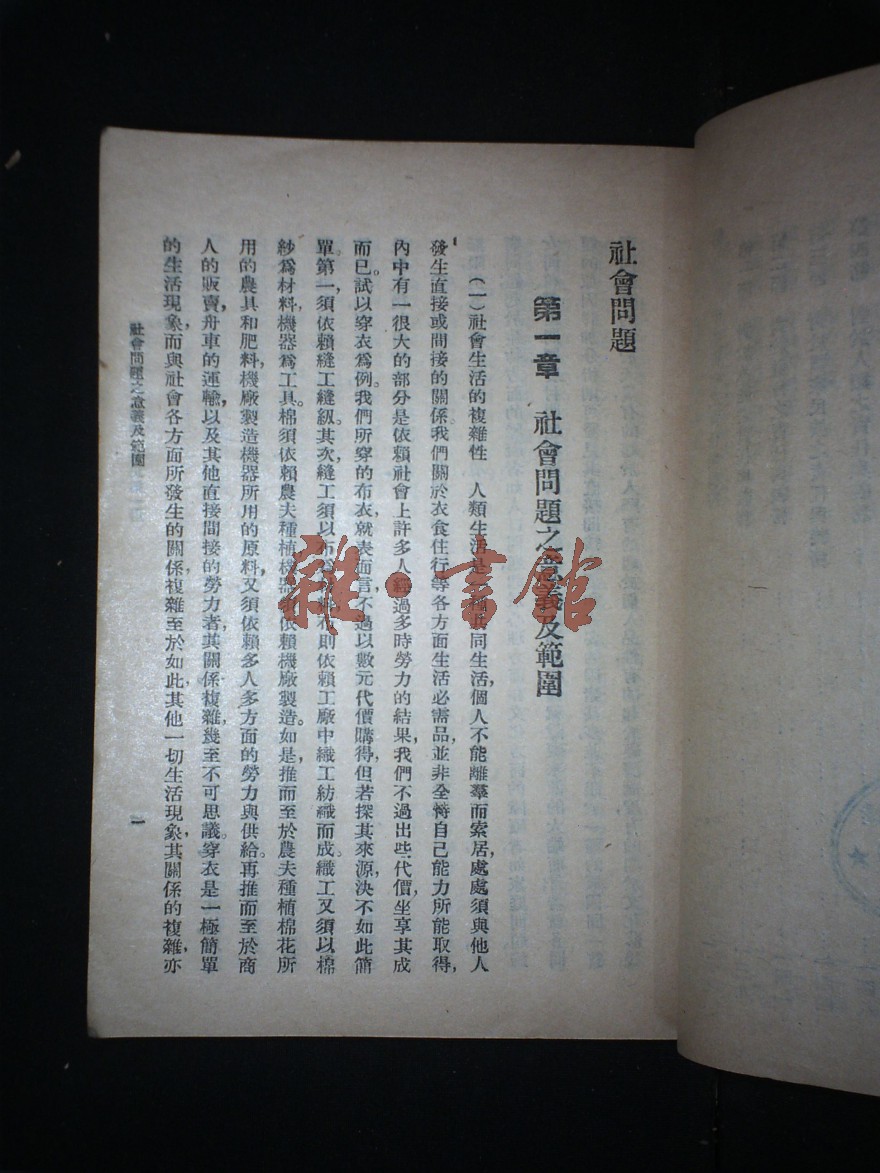 社會問題
第一章 社會問題之意義及範圍
(一)社會生活的複雜性 人類生活是一種共同生活,個人不能離羣而索居,處處須與他人
發生直接或間接的關係。我們關於衣食住行等各方面生活必需品,並非全恃自己能力所能取得,
內中有一很大的部分是依賴社會上許多人經過多時勞力的結果,我們不過出些代價,坐享其成
而已。試以穿衣爲例。我們所穿的布衣,就表面言,不過以數元代價購得,但若探其來源,決不如此簡
單。第一,須依賴縫工縫級。其次,縫工須以布爲材料,布則依賴工廠中織工紡織而成。織工又須以棉
紗爲材料,機器爲工具。棉須依賴農夫種植,機器須依賴機廠製造。如是,推而至於農夫種植棉花所
用的農具和肥料,機廠製造機器所用的原料,又須依賴多人多方面的勞力與供給。再推而至於商
人的販賣,舟車的運輸,以及其他直接間接的勞力者,其關係複雜,幾至不可思議。穿衣是一極簡單
的生活現象,而與社會各方面所發生的關係,複雜至於如此,其他一切生活現象,其關係的複雜,亦
社會問題之意義及範圍
一
雜·書館